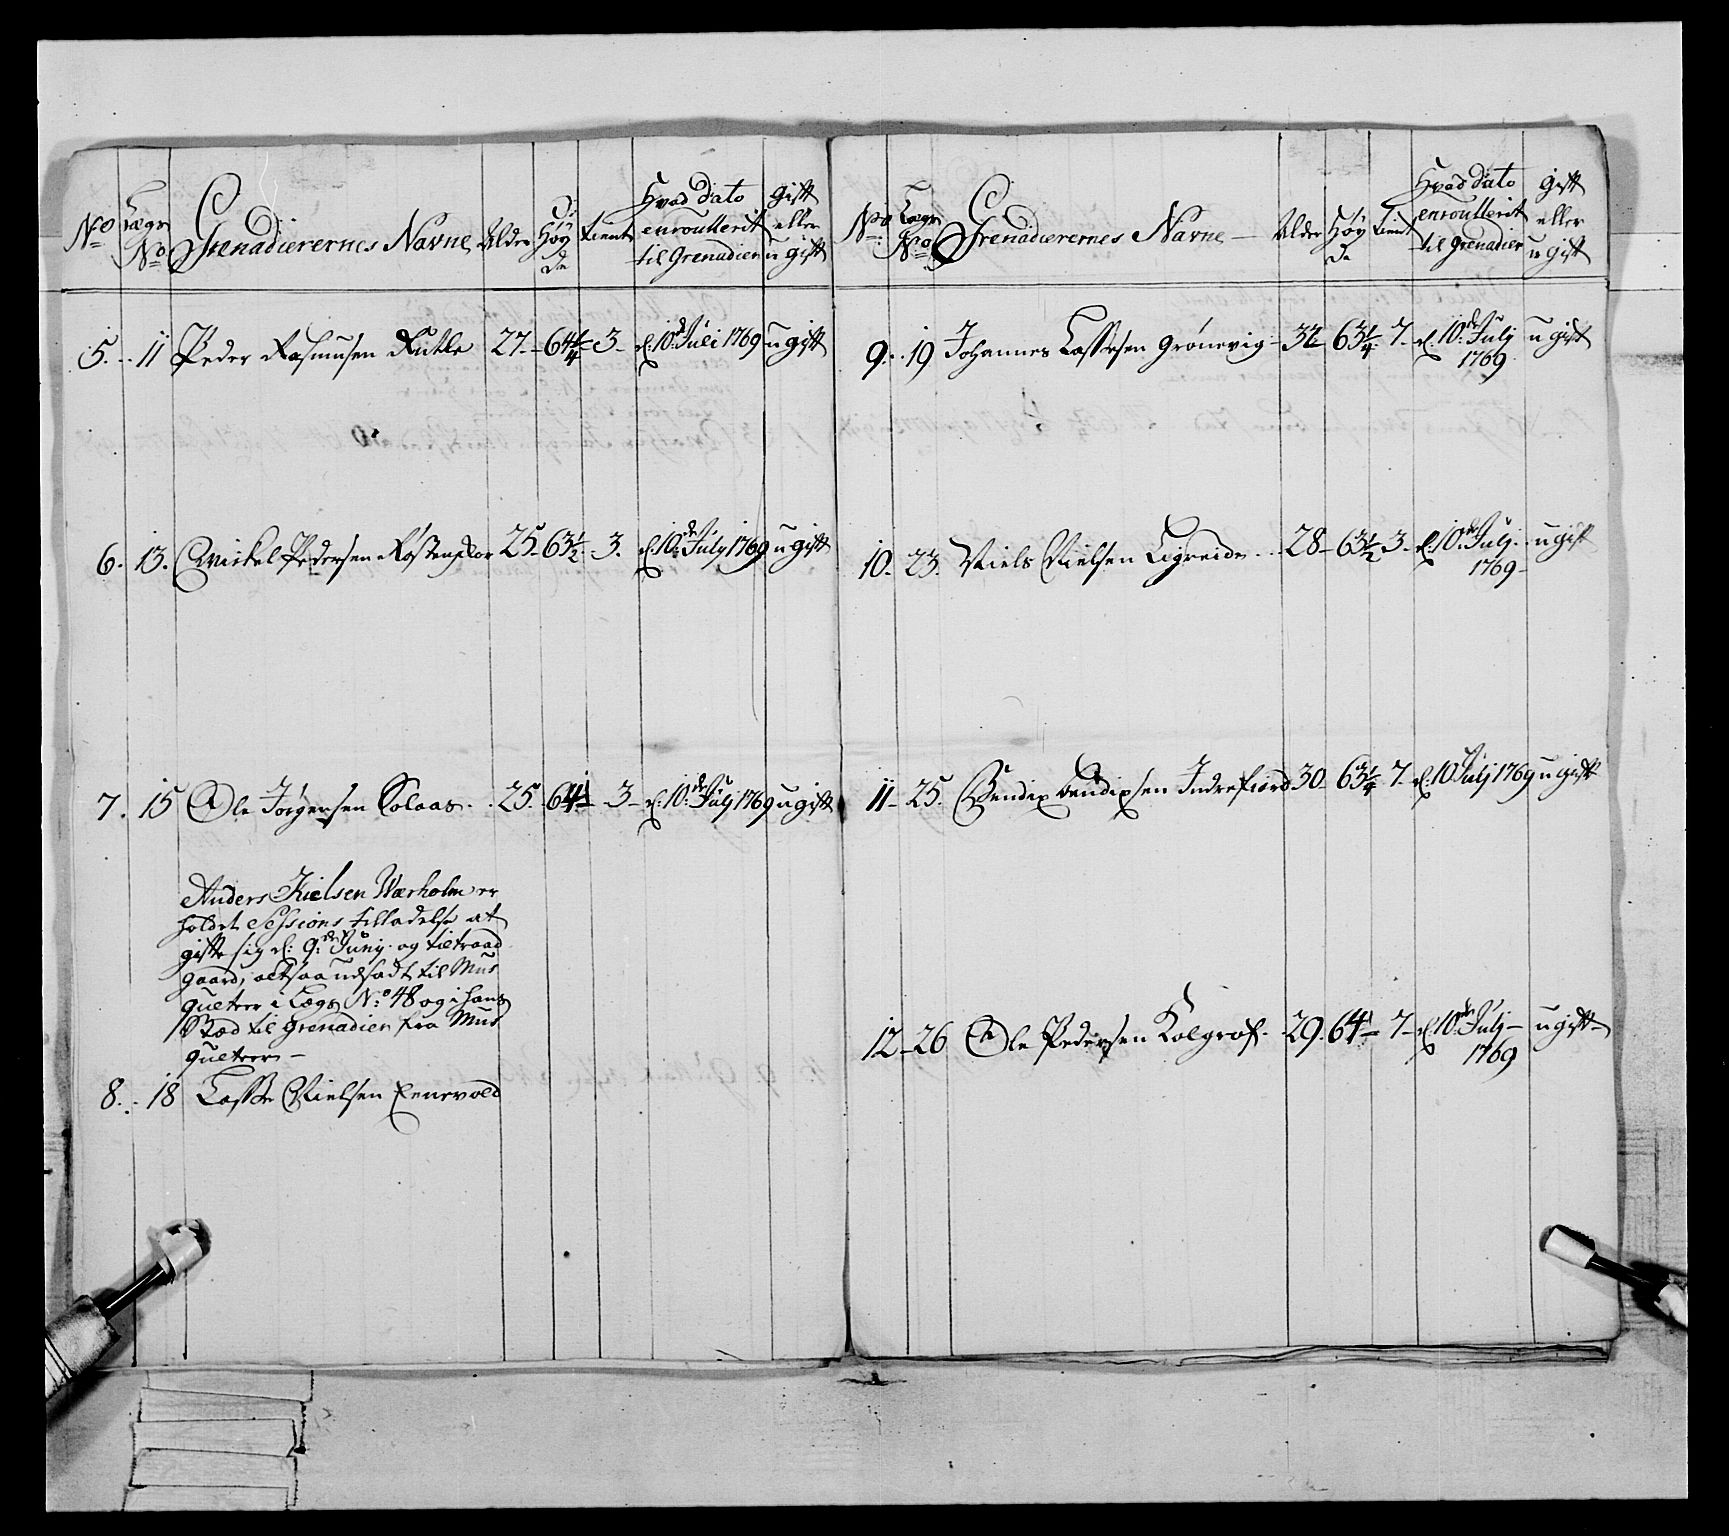 No Lægs No Grenadierernes Navne Alder Høy de tient Hvad dato enroullerit til Grenadier gift eller ugift
5. 11 Peder Rasmusen Rutle 27 64 1/4 3 d. 10de Juli 1769 ugift
6. 13. Mickel Pedersen 25 63 1/2 3. d. 10de July 1769 ugift
7. 15 Ole Jørgensen Solaas 25 64 3 d. 10de Julj 1769 ugift
Anders Nielsen Wærholm er
holdet Sessions tilladelse at
gifte sig d: 9de Junij og tiltraad
gaard, altsaa udsadt til Mus
queteer i Lægs No 48 og i hans
Stæd til Grenadier fra Mus
queteer
8. 18 Lasse Nielsen Eenevold
No Lægs No Grenadierernes Navne Alder Høy de tient Hvad dato enroullerit til Grenadier gift eller ugift
9. 19 Johannes Lassesen Grønevig 32 63 1/4 7 d. 10de Julj 1769 ugift
10. 23. Niels Nielsen Ligreide 28 63 1/2 3 d. 10de Julj 1769 ugift
11 25. Bendix Bendixsen Indrefiord 30 63 1/4 7 d. 10 Julj 1769 ugift
12 26 Ole Pedersen Kolgrof 29. 64 7 d. 10de Julj 1769 ugift